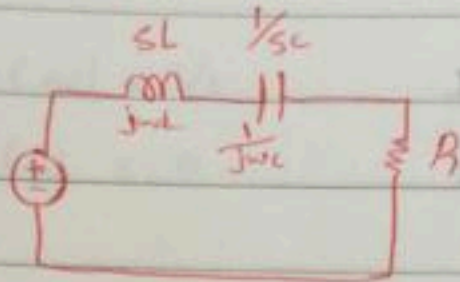 SL 1/SC
jwL 1/jwc
R
+
-